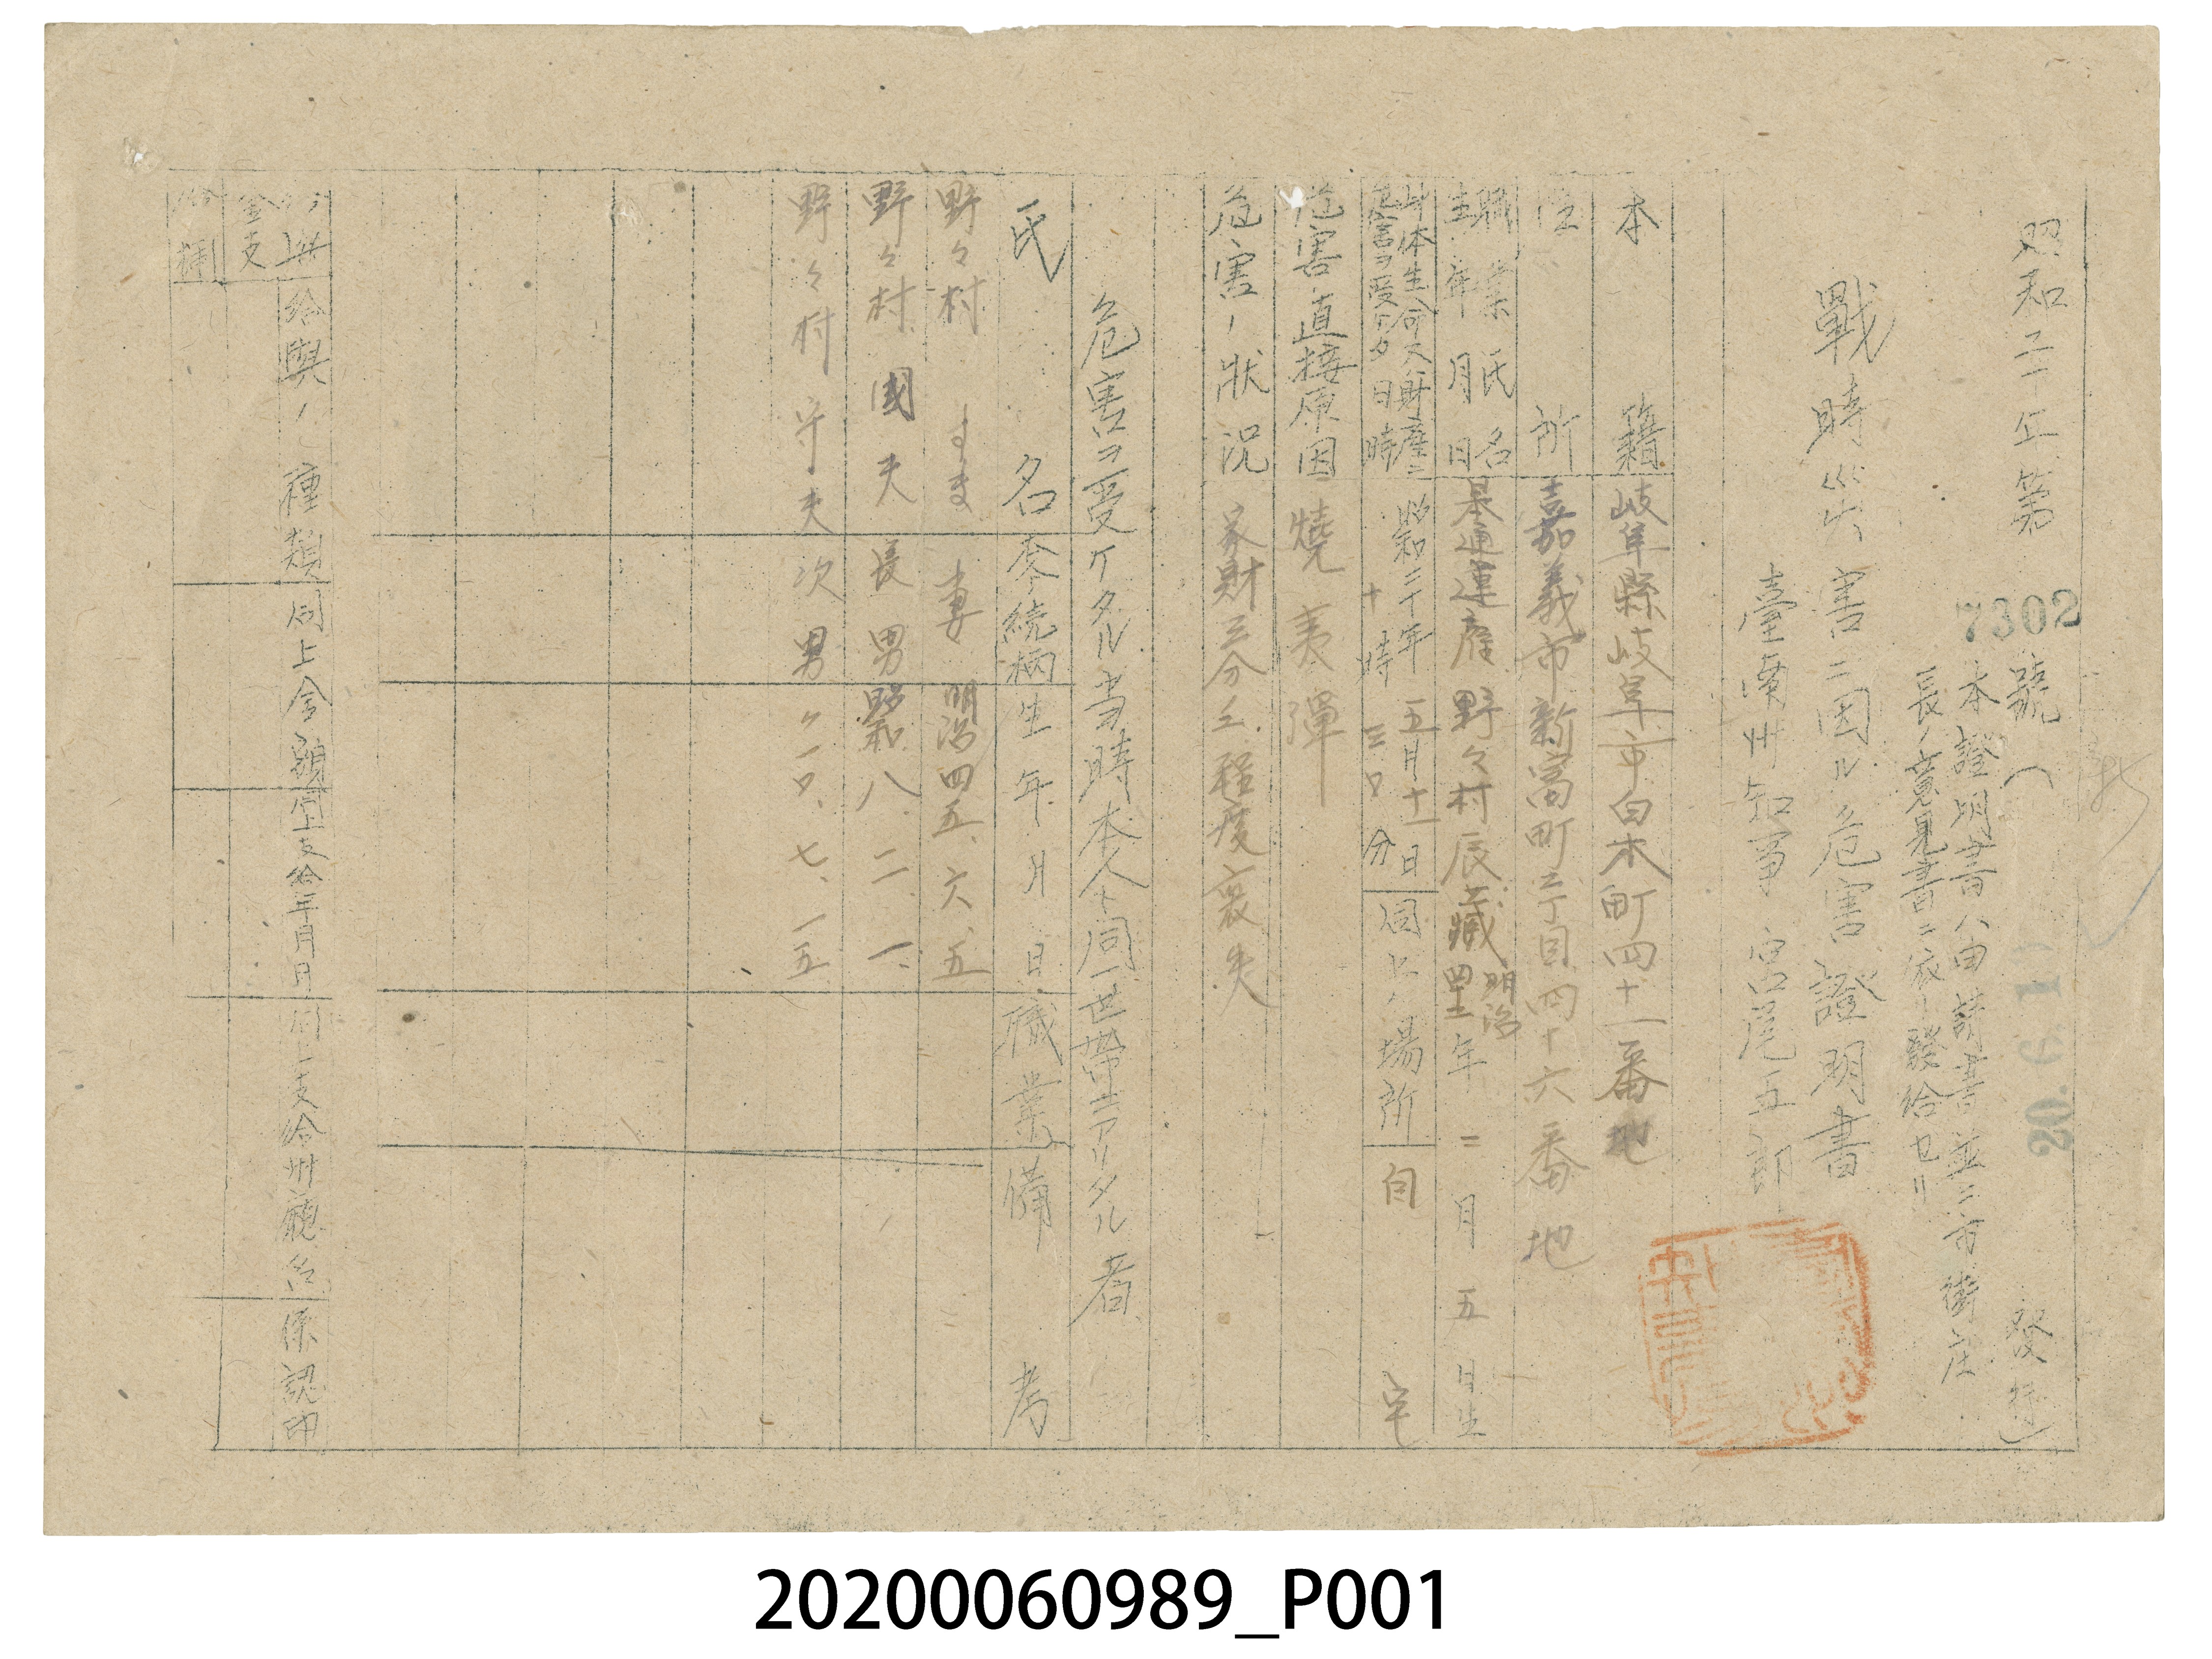 昭和二十年第7302號(20.6.1 發行)
本證明書ハ申請書並ニ市街庄
長ノ意見書ニ依リ發給セリ
戰時災害ニ因ル危害證明書
臺南州知事 宮尾五郎
本籍 岐阜縣岐阜市白木町四十一番地
住所 嘉義市新富町二丁目四十六番地
職業氏名
生年月日
日通運産 野々村辰藏
明治四十年二月五日生
身体生命又ハ財産ニ
危害ヲ受ケタ日時
昭和二十年五月十一日
十時三〇分
同上ノ場所 自宅
危害ノ直接原因 燒夷彈
危害ノ狀況 家財三分ノ二程度喪失
危害ヲ受ケタル当時本人ト同一世帯ニアリタル者
氏名 続柄 生年月日 職業 備考
野々村 すま 妻 明治四五、六、五
野々村 國夫 長男 昭和八、二、一
野々村 守夫 次男 〃一〇、七、一五
給與ノ種類 同上金額 同上支給年月日 同上支給州廳名 係認印